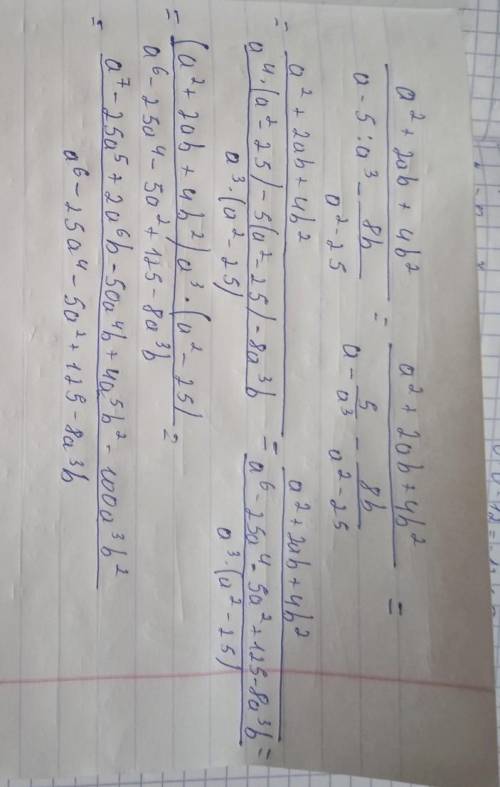 a² + 2ab + 4b² / a - 5 : a³ - 8b / a² - 25 = a² + 2ab + 4b² / a - 5 / a³ - 8b / a² - 25 =
= a² + 2ab + 4b² / a⁴ · (a² - 25) - 5(a² - 25) - 8a³b / a³ · (a² - 25) = a² + 2ab + 4b² / a⁶ - 25a⁴ - 5a² + 125 - 8a³b / a³ · (a² - 25) =
= (a² + 2ab + 4b²) a³ · (a² - 25) / a⁶ - 25a⁴ - 5a² + 125 - 8a³b =
= a⁷ - 25a⁵ + 2a⁶b - 50a⁴b + 4a⁵b² - 100a³b² / a⁶ - 25a⁴ - 5a² + 125 - 8a³b